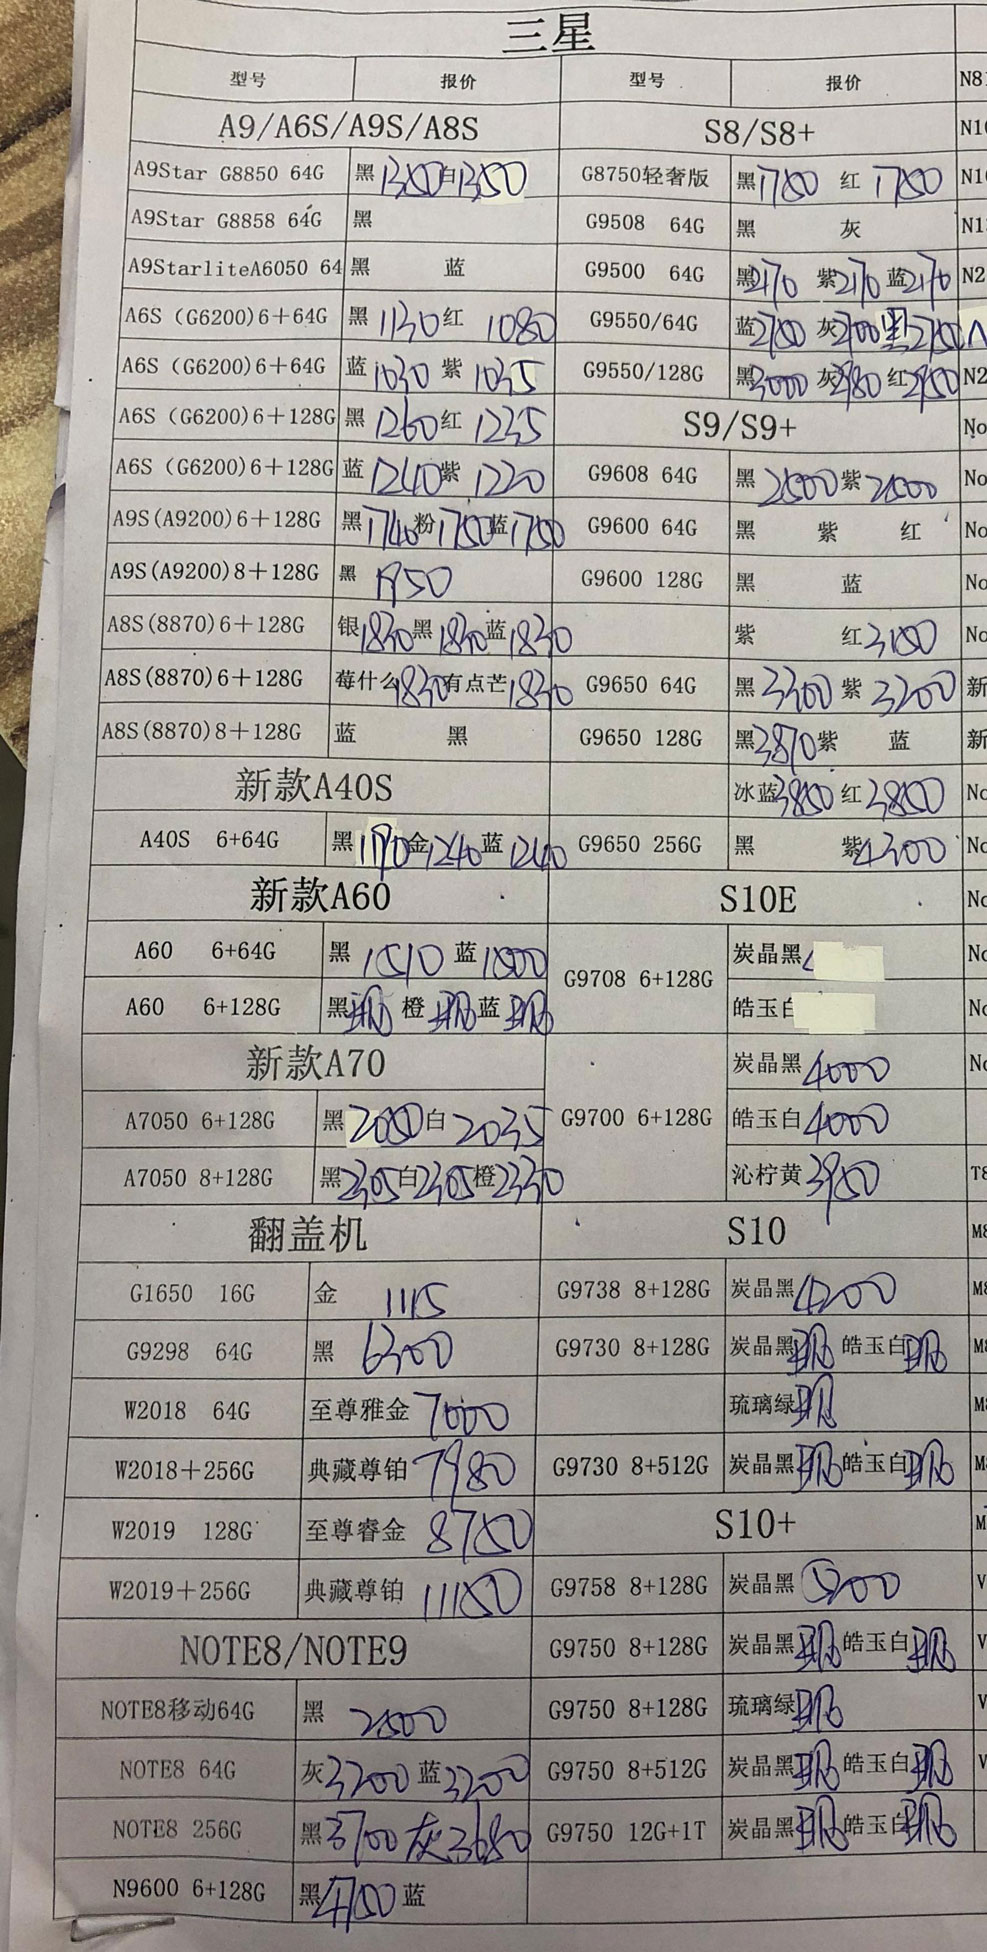 三星
型号 报价 型号 报价 N8
A9/A6S/A9S/A8S S8/S8+ N1
A9Star G8850 64G 黑1350白1350 G8750轻奢版 黑1750 红1750 N1
A9Star G8858 64G 黑 G9508 64G 黑 灰 N1
A9StarliteA6050 64 黑 蓝 G9500 64G 黑2170 紫2170 蓝2170 N2
A6S (G6200)6+64G 黑1130红 1080 G9550/64G 蓝2750 灰2700黑2750
A6S (G6200)6+64G 蓝1030 紫 1035 G9550/128G 黑3000 灰2980 红2950 N2
A6S (G6200)6+128G 黑1260红1235 S9/S9+ No
A6S (G6200)6+128G 蓝1240紫1220 G9608 64G 黑2500紫2500 No
A9S(A9200)6+128G 黑1740粉1750蓝1750 G9600 64G 黑 紫 红 No
A9S(A9200)8+128G 黑 1950 G9600 128G 黑 蓝 No
A8S(8870)6+128G 银1830黑1830蓝1830 紫 红3150 No
A8S(8870)6+128G 莓什么1830有点芒1830 G9650 64G 黑3300紫3200 新
A8S(8870)8+128G 蓝 黑 G9650 128G 黑3870紫 蓝 新
新款A40S 冰蓝3850红3850 No
A40S 6+64G 黑1190金1240蓝1240 G9650 256G 黑 紫4300 No
新款A60 S10E No
A60 6+64G 黑1510 蓝1500 G9708 6+128G 炭晶黑 No
A60 6+128G 黑现 橙现蓝现 皓玉白 No
新款A70 炭晶黑4000 No
A7050 6+128G 黑2050白2035 G9700 6+128G 皓玉白4000
A7050 8+128G 黑2305白2305橙2330 沁柠黄3950 T8
翻盖机 S10 M8
G1650 16G 金 1115 G9738 8+128G 炭晶黑4200 M8
G9298 64G 黑 6300 G9730 8+128G 炭晶黑现 皓玉白现 M8
W2018 64G 至尊雅金7000 琉璃绿现 M
W2018+256G 典藏尊铂7980 G9730 8+512G 炭晶黑现皓玉白现 M
W2019 128G 至尊睿金 8750 S10+ M
W2019+256G 典藏尊铂 11150 G9758 8+128G 炭晶黑5200 V
NOTE8/NOTE9 G9750 8+128G 炭晶黑现皓玉白现 V
NOTE8移动64G 黑 2500 G9750 8+128G 琉璃绿现 V
NOTE8 64G 灰3200 蓝3200 G9750 8+512G 炭晶黑现皓玉白现 V
NOTE8 256G 黑3700灰3680 G9750 12G+1T 炭晶黑现皓玉白现
N9600 6+128G 黑4750蓝